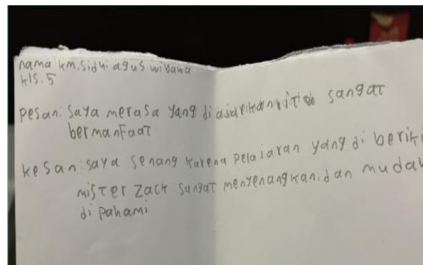 nama km.sidhi agus wibawa
kls.5
pesan: saya merasa yang di ajarikan sangat
bermanfaat
kesan: saya senang karena pelajaran yang di beriki
mister zack sangat menyenangkan.dan mudah
di pahami